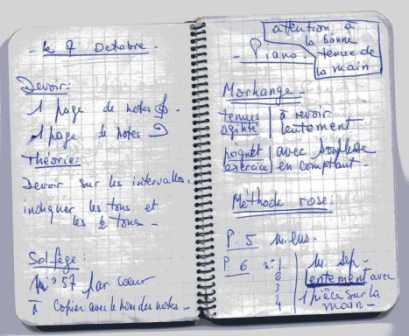 - le 7 Octobre -
Devoir:
1 page de notes 𝄞.
1 page de notes 𝄢
Théorie:
Devoir sur les intervalles.
indiquer les tons et
les ½ tons -
Solfège:
N° 57 par cœur
Copier avec le nom des notes -
attention à
la bonne
tenue de
la main
- Piano -
Markange -
tenues | à revoir
agilité | lentement
poignet | avec souplesse
exercice | en comptant -
Méthode rose:
P. 5
P. 6 n° 1 m. sep.
2 lentement avec
3 1 pièce sur la
4 main -